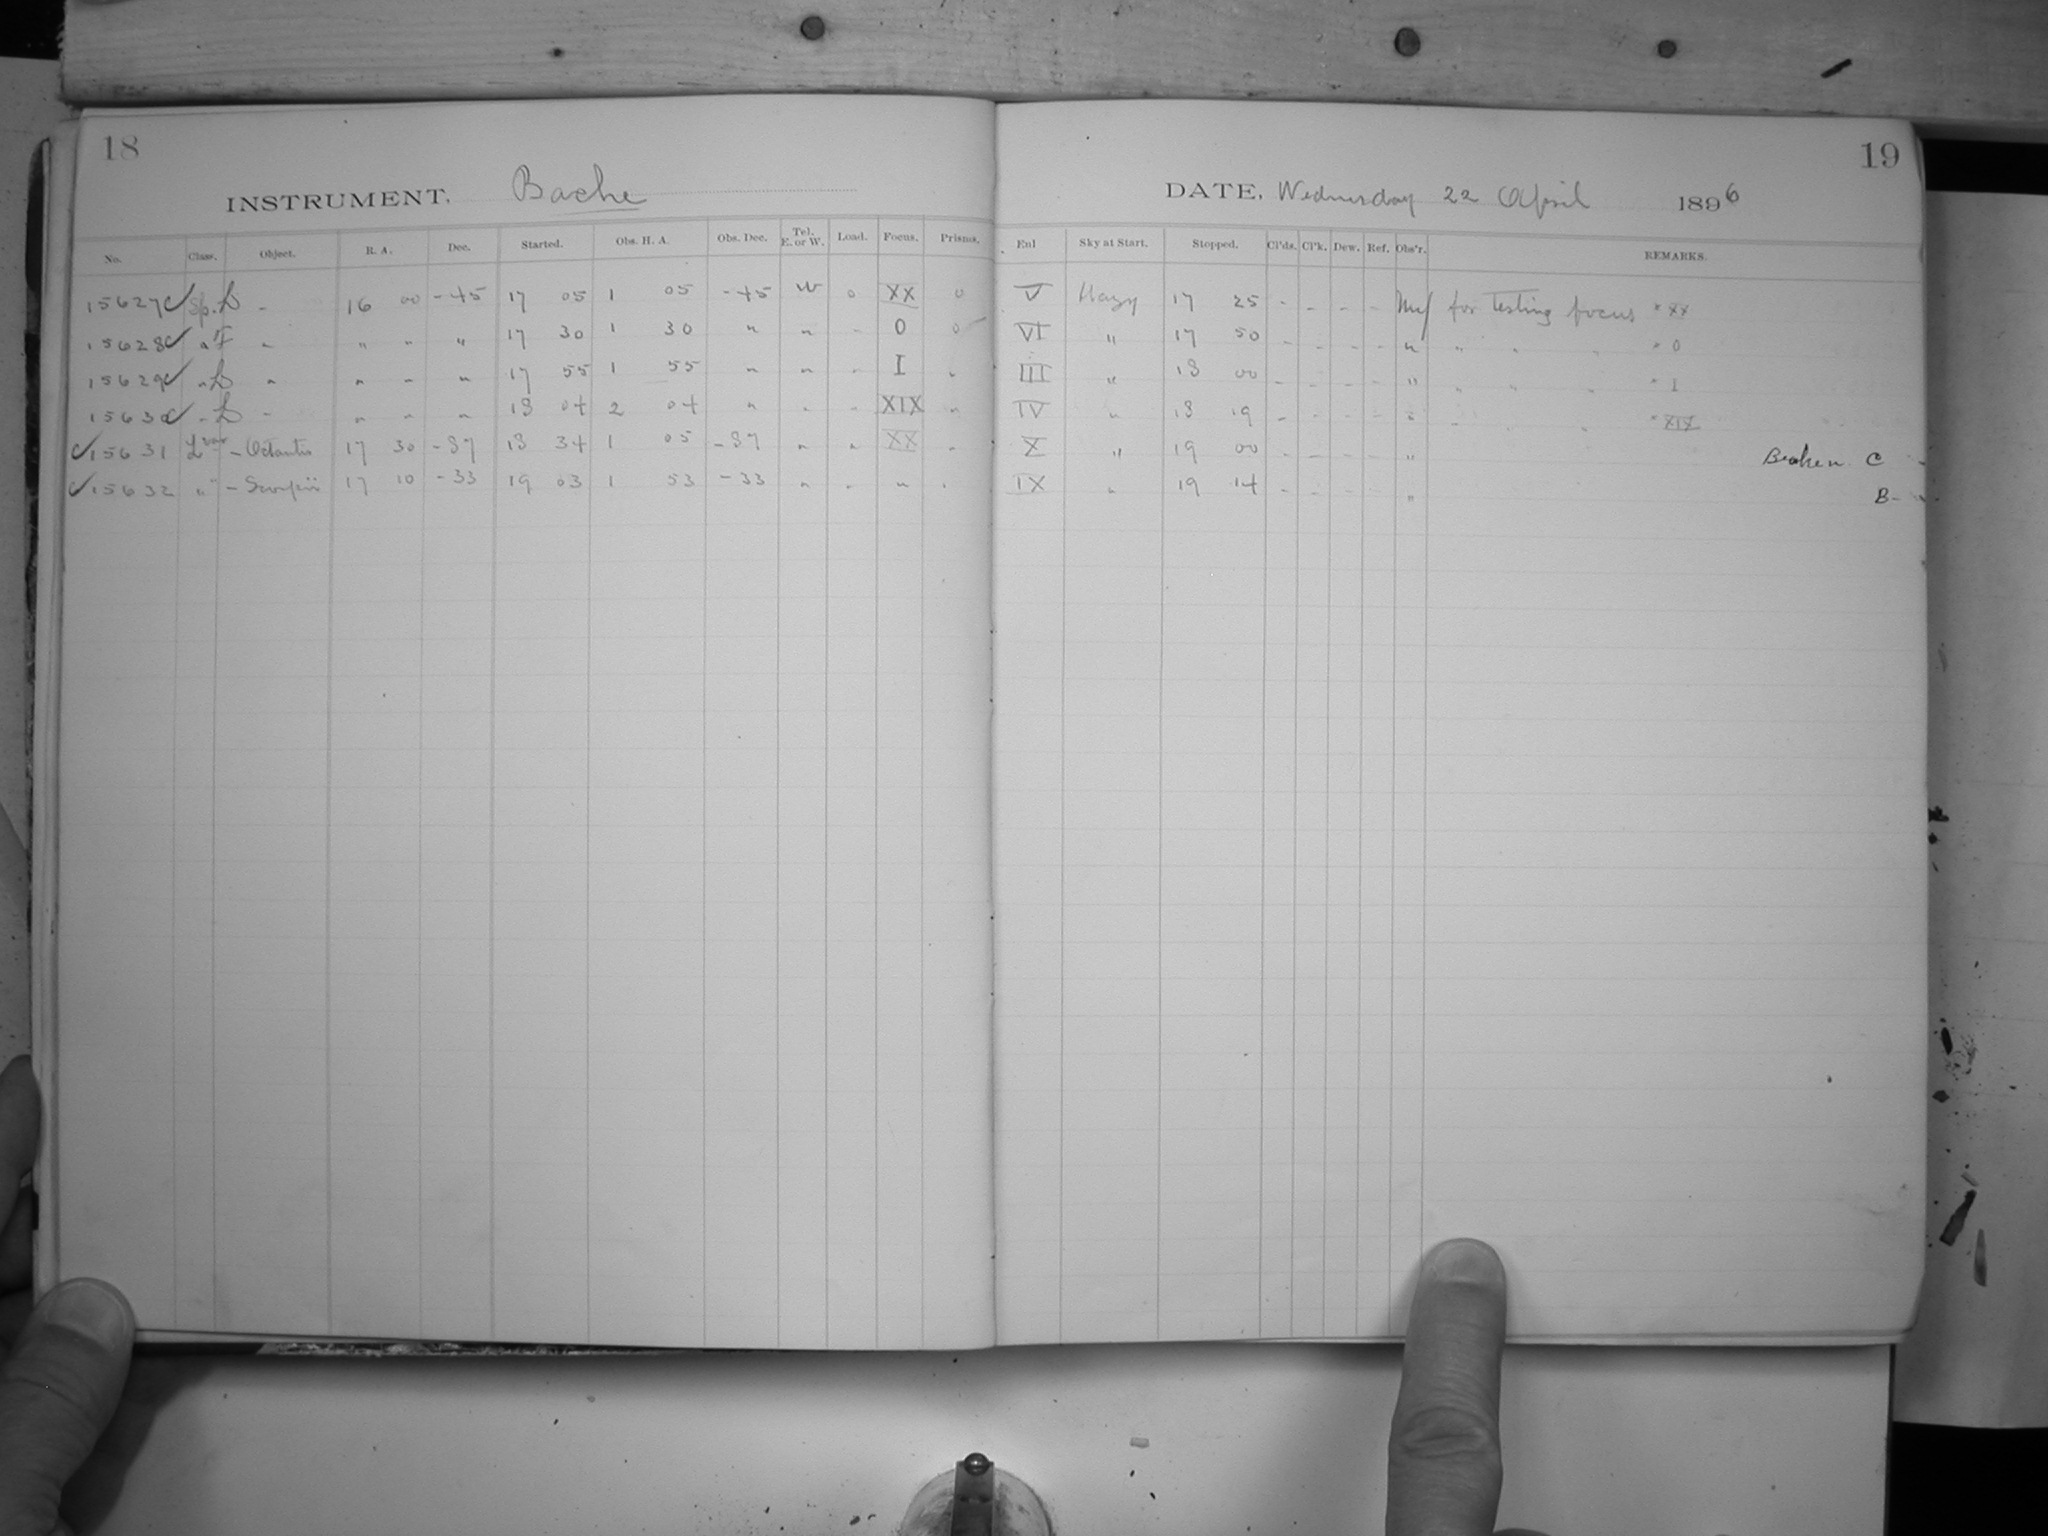 18
INSTRUMENT. Bache
No. Class. Object. R. A. Dec. Started. Obs. H. A. Obs. Dec. Tel. E. or W. Load. Focus. Prisms.
15627 Sp. - 16 00 -45 17 05 1 05 -45 W 0 XX 0
15628 " " " " " 17 30 1 30 " " - 0 0
15629 " " " " " 17 55 1 55 " " - I "
15630 " - " " " 18 04 2 04 " " - XIX "
15631 - Octantis 17 30 -87 18 34 1 05 -87 " " XX "
15632 " - Scorpii 17 10 -33 19 03 1 53 -33 " " " "
19
DATE, Wednesday 22 April 1896
Enl Sky at Start. Stopped. Cl'ds. Cl'k. Dew. Ref. Obs'r. REMARKS.
V Hazy 17 25 - - - - for Testing focus " XX
VI " 17 50 - - - - " " " " " 0
III " 18 00 - - - - " " " " " I
IV " 18 19 - - - - " " " " " XIX
X " 19 00 - - - - " Broken C
IX " 19 14 - - - - " B-